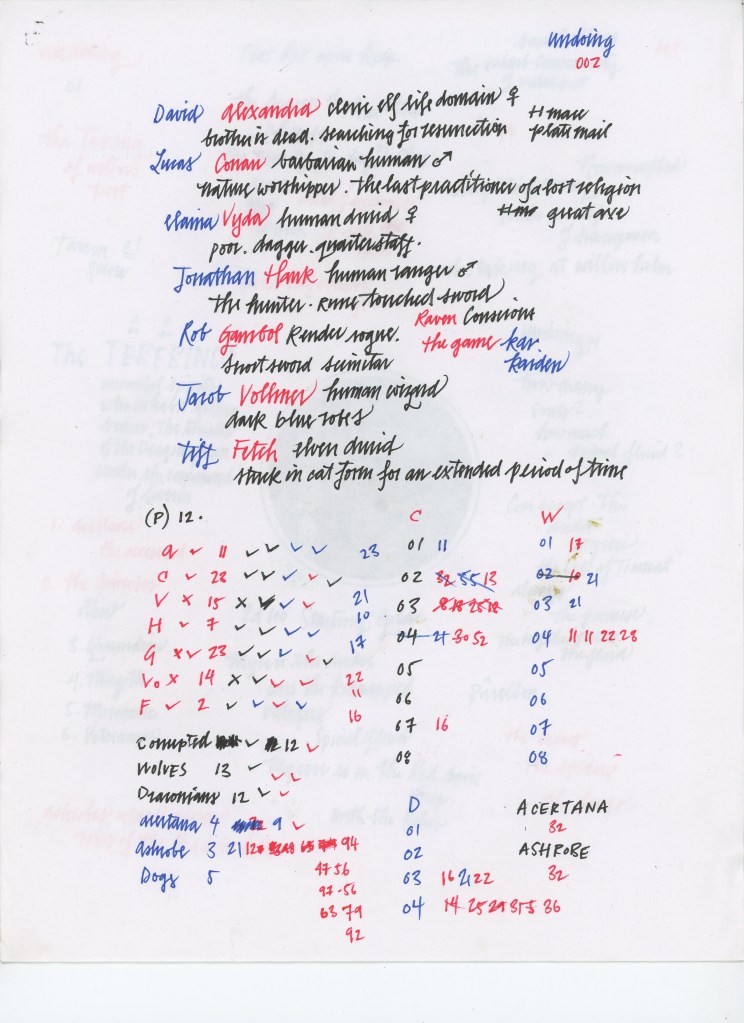 undoing
002
David Alexandra cleric elf life domain ♀
brother is dead. searching for resurrection
mace
plate mail
Lucas Conan barbarian human ♂
nature worshipper. the last practitioner of a lost religion
great axe
elaina Vyda human druid ♀
poor. dagger. quarterstaff.
Jonathan Hank human ranger ♂
the hunter. rune touched sword
Rob Gambol Kender rogue.
Raven Conscious
the game kar
kaiden
short sword scimitar
Jacob Vollmer human wizard
dark blue robes
Tiff Fetch elven druid
stuck in cat form for an extended period of time
(P) 12.
C
W
a ✓ 11 ✓ ✓ ✓ ✓ 23
C ✓ 28 ✓ ✓ ✓ ✓ ✓
V × 15 × ✓ ✓ ✓ 21
H ✓ 7 ✓ ✓ ✓ ✓ 10
G × ✓ 23 ✓ ✓ ✓ ✓ ✓ 17
Vo × 14 × ✓ ✓ ✓ 22
11
F ✓ 2 ✓ ✓ ✓ ✓ 16
01 11
02 32 35 13
03
04 21 30 52
05
06
07 16
08
01 17
02 10 21
03 21
04 11 11 22 28
05
06
07
08
Corrupted ✓ 12 ✓
WOLVES 13 ✓ ✓ ✓
Draconians 12 ✓ ✓
acertana 4 9 ✓
ashrobe 3 21 12 94
Dogs 5
47 56
97-56
63 79
92
D
01
02
03 16 21 22
04 14 25 29 31 5 36
ACERTANA
32
ASHROBE
32